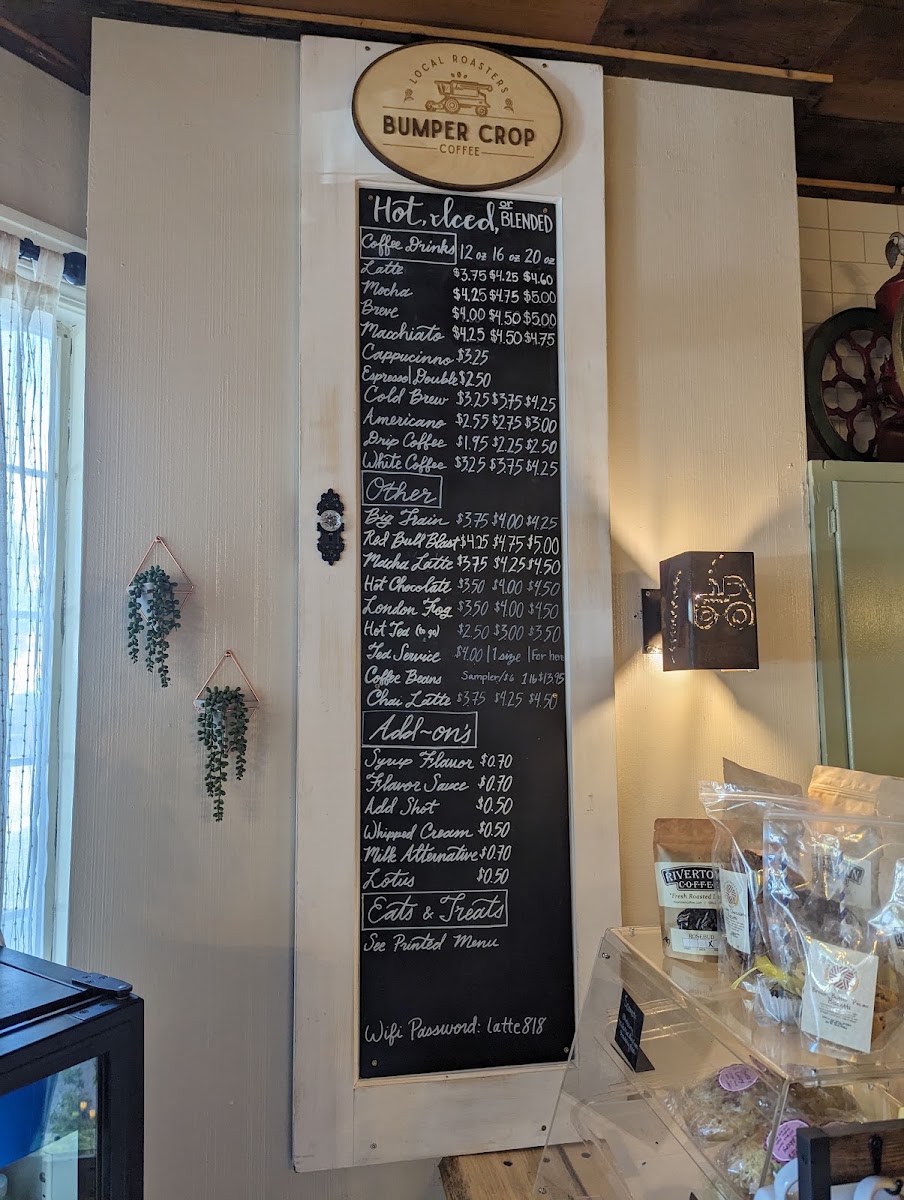 LOCAL ROASTERS
BUMPER CROP
COFFEE
Hot, Iced, or BLENDED
Coffee Drinks 12 oz 16 oz 20 oz
Latte $3.75 $4.25 $4.60
Mocha $4.25 $4.75 $5.00
Breve $4.00 $4.50 $5.00
Macchiato $4.25 $4.50 $4.75
Cappucinno $3.25
Espresso|Double $2.50
Cold Brew $3.25 $3.75 $4.25
Americano $2.55 $2.75 $3.00
Drip Coffee $1.95 $2.25 $2.50
White Coffee $3.25 $3.75 $4.25
Other
Big Train $3.75 $4.00 $4.25
Red Bull Blast $4.25 $4.75 $5.00
Matcha Latte $3.75 $4.25 $4.50
Hot Chocolate $3.50 $4.00 $4.50
London Fog $3.50 $4.00 $4.50
Hot Tea (to go) $2.50 $3.00 $3.50
Tea Service $4.00 | 1 size | For here
Coffee Beans Sampler/$6 1 lb $13.95
Chai Latte $3.75 $4.25 $4.50
Add~on's
Syrup Flavor $0.70
Flavor Sauce $0.70
Add Shot $0.50
Whipped Cream $0.50
Milk Alternative $0.70
Lotus $0.50
Eats & Treats
See Printed Menu
Wifi Password: latte818
COFFEE
"Fresh Roasted
ROSEBUD